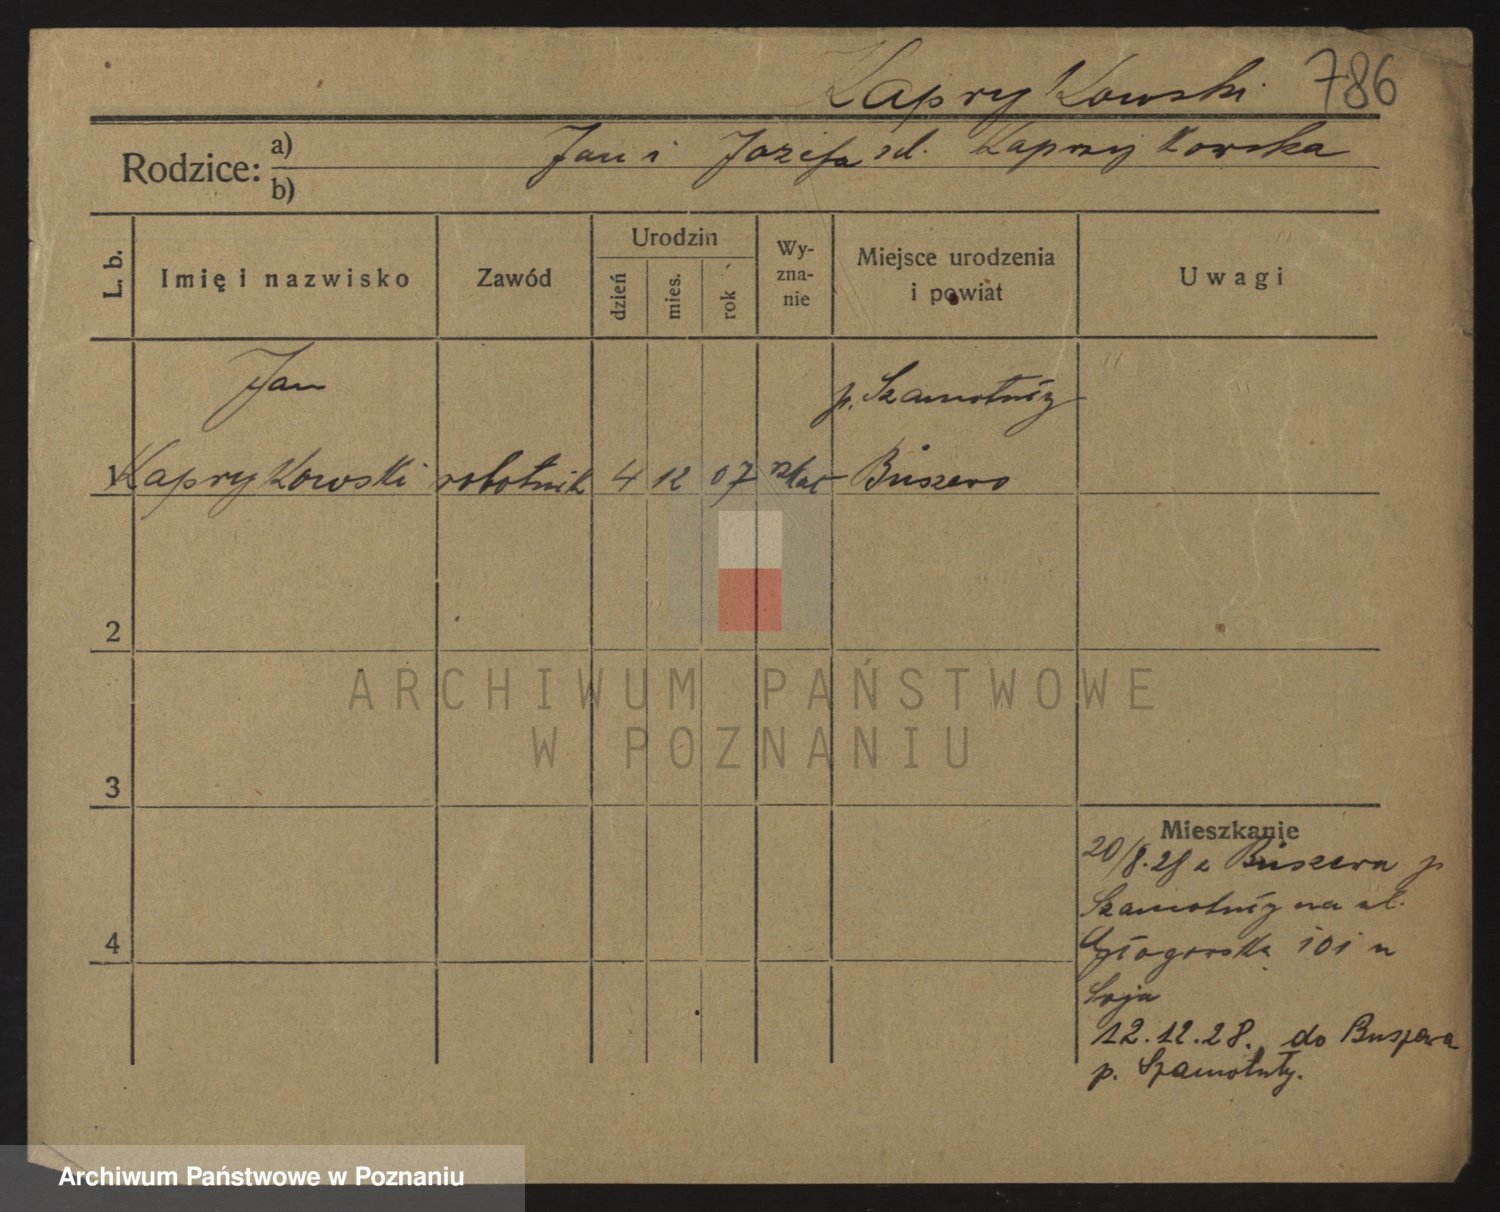 Kaprykowski 786
Rodzice: a) Jan i Jozefa zd. Kaprzykowska
b)
L. b. Imię i nazwisko Zawód Urodzin dzień mies. rok Wy-zna-nie Miejsce urodzenia i powiat Uwagi
Jan p. Szamotuły
1 Kaprykowski robotnik 4 12 07 rzkat Buszewo
2
3
4
Mieszkanie
20/8.28 z Buszewa p
Szamotuły na ul.
Głogowska 101 u
12.12.28. do Buszewa
p. Szamotuły.
ARCHIWUM PAŃSTWOWE
W POZNANIU
Archiwum Państwowe w Poznaniu